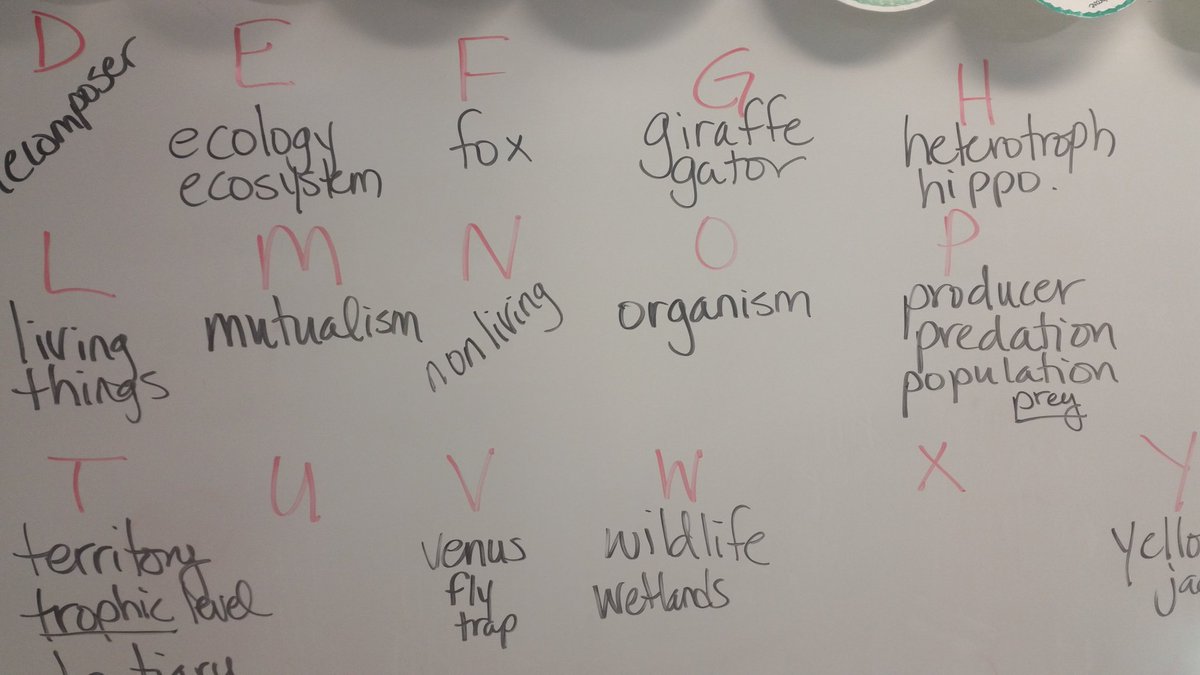 D E F G H
ecomposer
ecology
ecosystem
fox
giraffe
gator
heterotroph
hippo.
L M N O P
living
things
mutualism
nonliving
organism
producer
predation
population
prey
T U V W X Y
territory
trophic level
venus
fly
trap
wildlife
wetlands
yello
ja